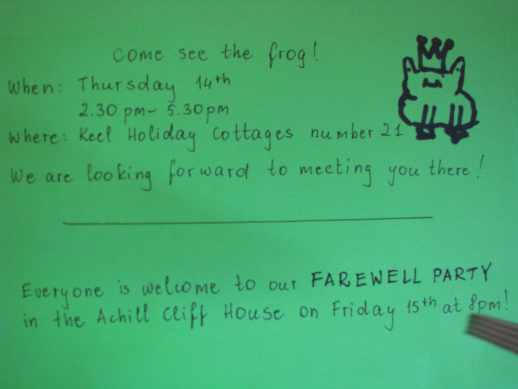 come see the frog!
When: Thursday 14th
2.30 pm - 5.30pm
Where: Keel Holiday Cottages number 21
We are looking forward to meeting you there!
Everyone is welcome to our FAREWELL PARTY
in the Achill Cliff House on Friday 15th at 8pm!